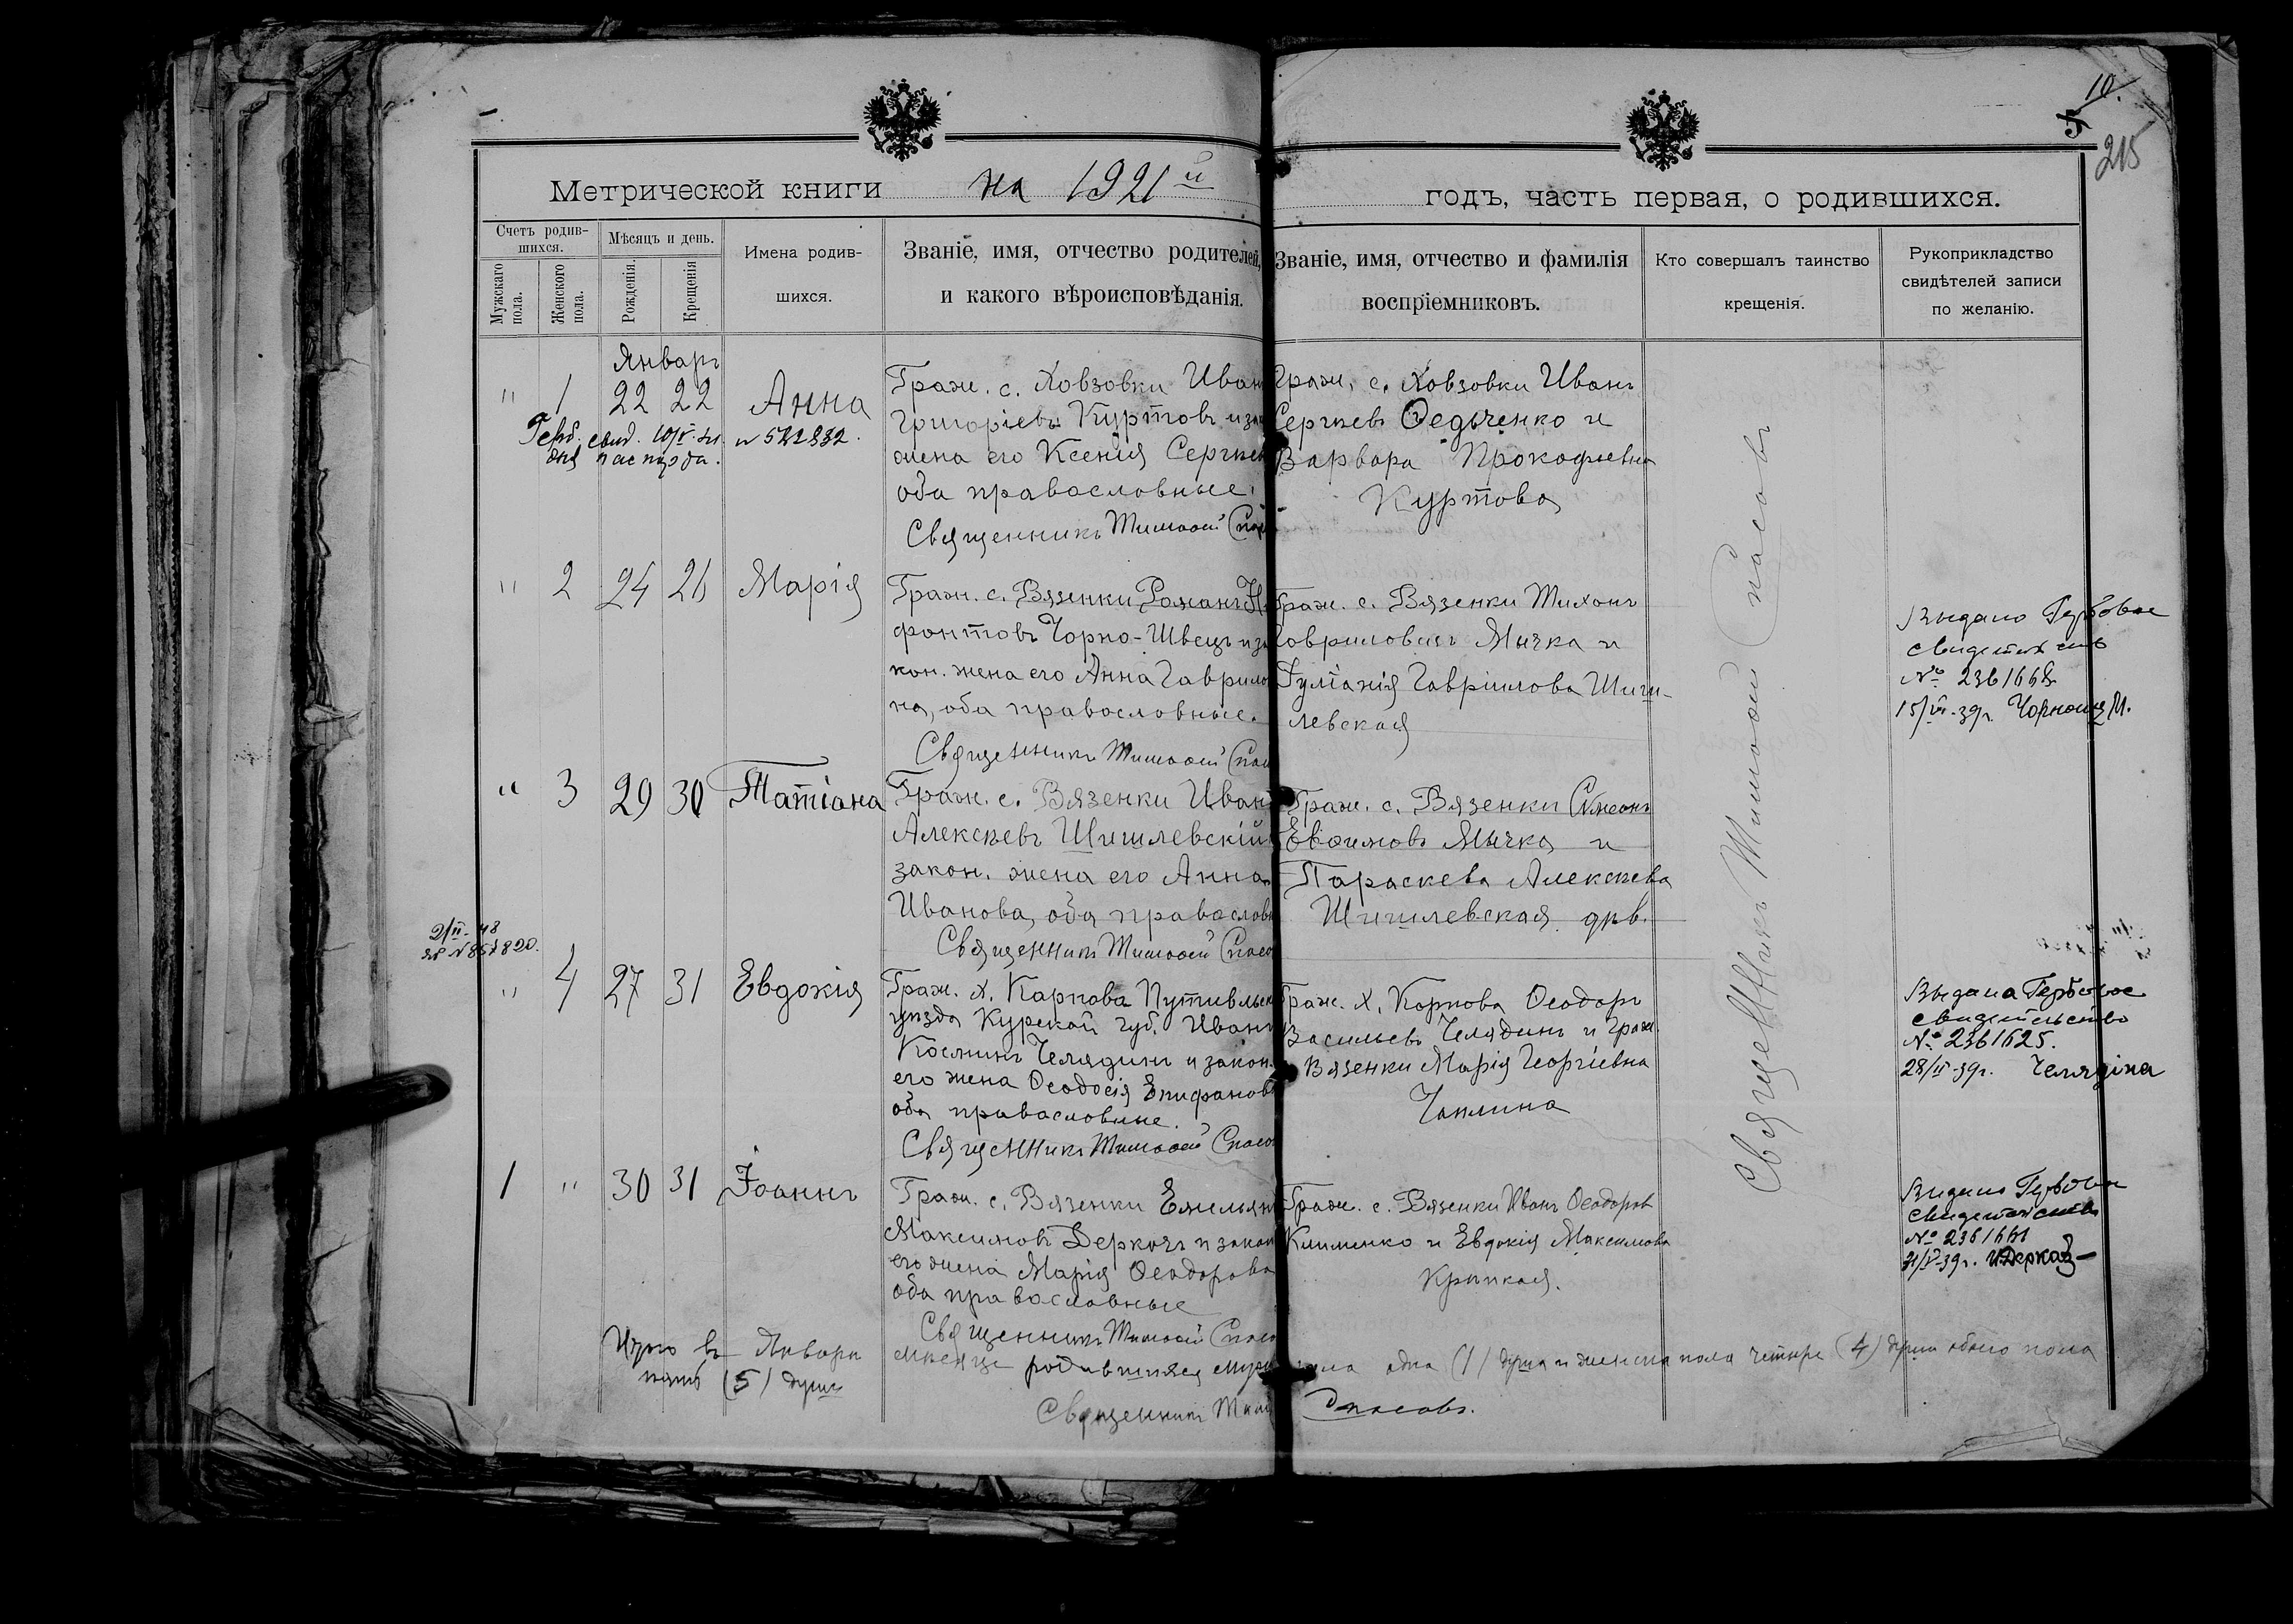 10.
215
Метрической книги на 1921й
годъ, часть первая, о родившихся.
Счетъ родив-
шихся.
Мужскаго
пола.
Женского
пола.
Мѣсяцъ и день.
Рожденія.
Крещенія
Имена родив-
шихся.
Званіе, имя, отчество родителей,
и какого вѣроисповѣданія.
Званіе, имя, отчество и фамилія
воспріемниковъ.
Кто совершалъ таинство
крещенія.
Рукоприкладство
свидѣтелей записи
по желанію.
Январь
" 1 22 22 Анна
Герб. свид.
для паспорта.
Граж. с. Ховзовки Иван
Григоріевъ Куртовъ и зак
жена его Ксенія Сергѣев
оба православные.
Священникъ Тимоѳей Спас
Граж. с. Ховзовки Иванъ
Сергѣевъ Ѳедченко и
Варвара Прокофьевна
Куртова
" 2 24 26 Марія
Граж. с. Вязенки Романъ Н
фонтовъ Чорно-Швецъ и за
кон. жена его Анна Гаврило
на, оба православные.
Священникъ Тимоѳей Спас
Граж. с. Вязенки Тихонъ
Гавриловичъ Мычка и
Іуліанія Гавріилова Шиш-
левская
Выдано Гербовое
свидетельство
№ 2361668
15/VI-39г.
" 3 29 30 Татіана
Граж. с. Вязенки Иван
Алексѣевъ Шишлевскій
закон. жена его Анна
Иванова, оба православн
Священникъ Тимоѳей Спасо
Граж. с. Вязенки Сѵмеонъ
Евѳимовъ Мычка и
Параскева Алексѣева
Шишлевская дѣв.
2/II-48
" 4 27 31 Евдокія
Граж. х. Карпова Путивльск
уѣзда Курской губ. Иванъ
Косминъ Челядинъ и закон.
его жена Ѳеодосія Епифанов
оба православные.
Священникъ Тимоѳей Спасо
Граж. х. Карпова Ѳеодоръ
Васильевъ Челядинъ и граж.
Вязенки Марія Георгіевна
Чаплина
Выдана Гербовое
свидетельство
№ 2361625.
28/II-39г. Челядіна
1 " 30 31 Іоаннъ
Граж. с. Вязенки Емельян
Максимовъ Деркачъ и закон
его жена Марія Ѳеодорова
оба православные
Священникъ Тимоѳей Спасо
Граж. с. Вязенки Иванъ Ѳеодоров
Клименко и Евдокія Максимова
Крыпкая.
Выдано Гербовое
свидетельство
21/V-39г. Деркач
Священникъ Тимоѳей Спасовъ
Итого въ Январѣ мѣсяце родившихся муж пола одна (1) душа и женска пола четыре (4) души обоего пола
пять (5) душъ
Священникъ Тим Спасовъ.